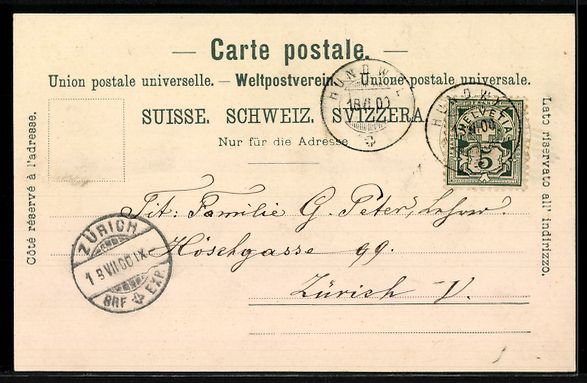 — Carte postale. —
Union postale universelle. — Weltpostverein. — Unione postale universale.
SUISSE. SCHWEIZ. SVIZZERA.
Nur für die Adresse
Côté réservé à l'adresse.
Lato riservato all' indirizzo.
HUNDW
HUNDW
HELVETIA
5
Tit: Familie G. Peter,
Höschgasse 99.
Zürich V.
ZÜRICH
18 VII 00 IX
BRF EXP.